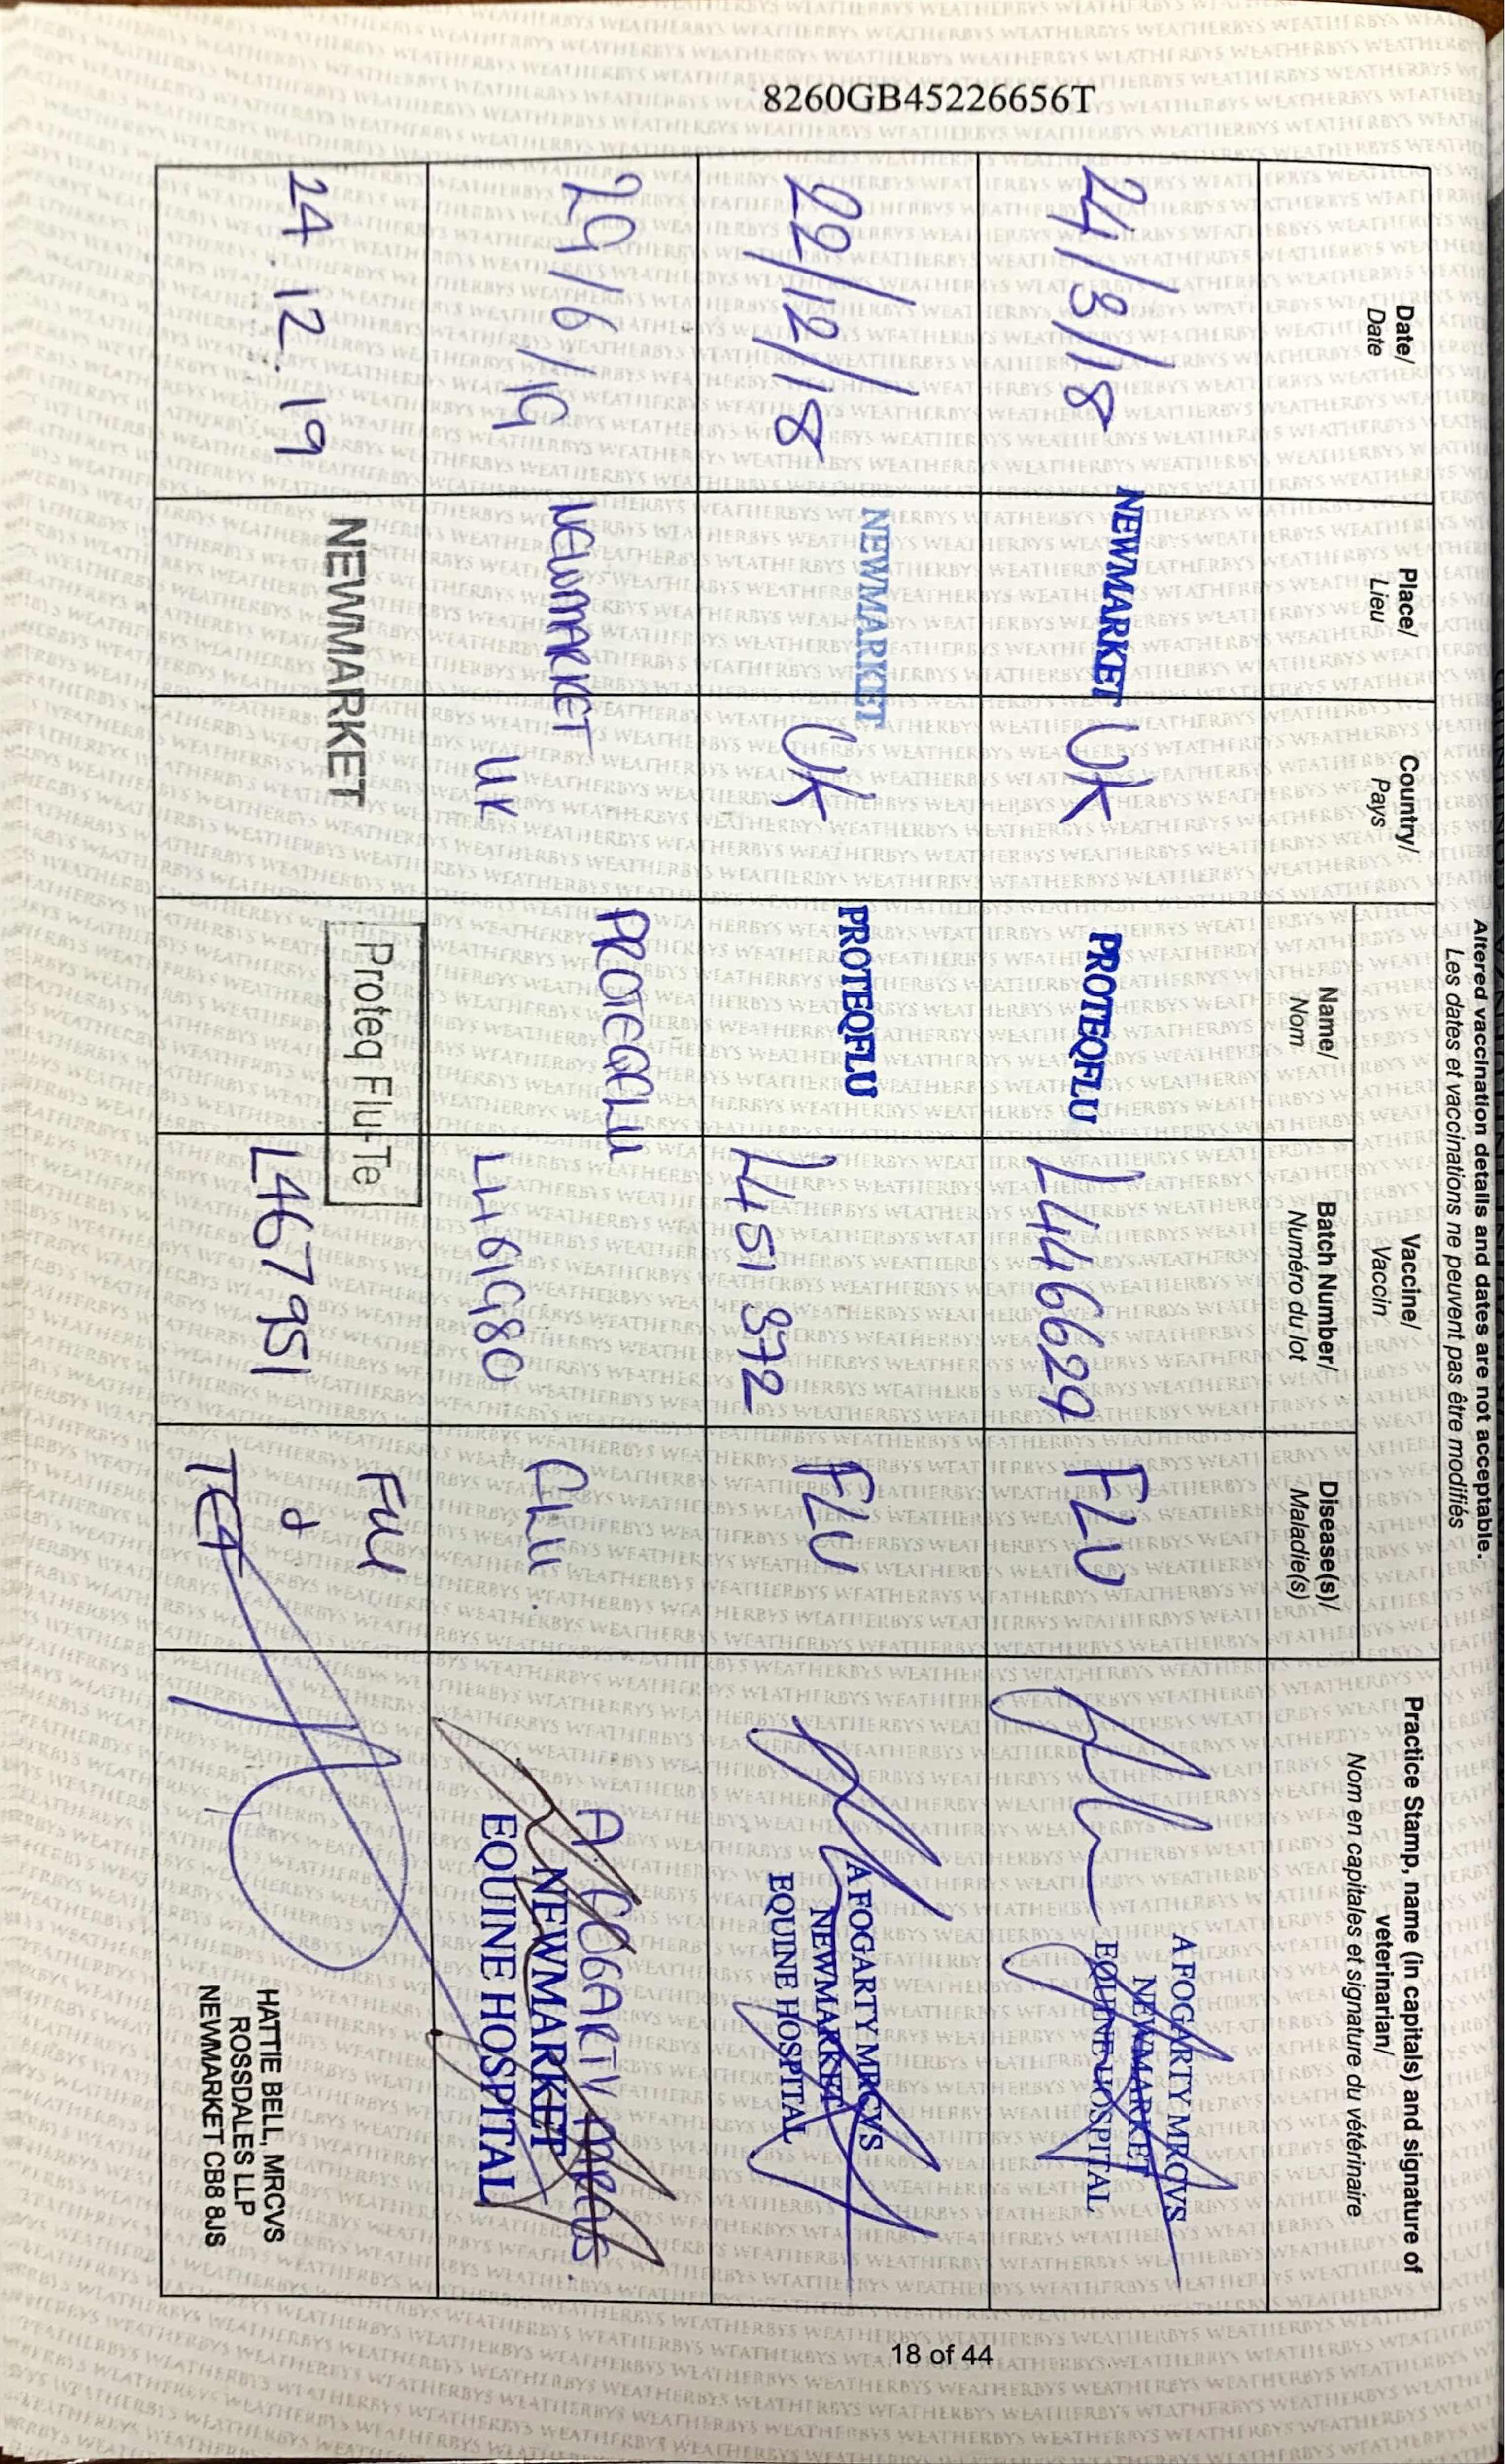 8260GB45226656T
Altered vaccination details and dates are not acceptable.
Les dates et vaccinations ne peuvent pas être modifiés
Date/
Date
Place/
Lieu
Country/
Pays
Vaccine/
Vaccin
Name/
Nom
Batch Number/
Numéro du lot
Disease(s)/
Maladie(s)
Practice Stamp, name (in capitals) and signature of
veterinarian/
Nom en capitales et signature du vétérinaire
24/3/18
NEWMARKET
UK
PROTEQFLU
L446629
FLU
A FOGARTY MRCVS
NEWMARKET
EQUINE HOSPITAL
22/12/18
NEWMARKET
UK
PROTEQFLU
L451372
FLU
A FOGARTY MRCVS
NEWMARKET
EQUINE HOSPITAL
29/6/19
NEWMARKET
UK
PROTEQFLU
L461980
FLU.
A. FOGARTY MRCVS.
NEWMARKET
EQUINE HOSPITAL
24.12.19
NEWMARKET
Proteq Flu-Te
L467951
Flu
&
TET
HATTIE BELL, MRCVS
ROSSDALES LLP
NEWMARKET CB8 8JS
18 of 44
WEATHERBYS